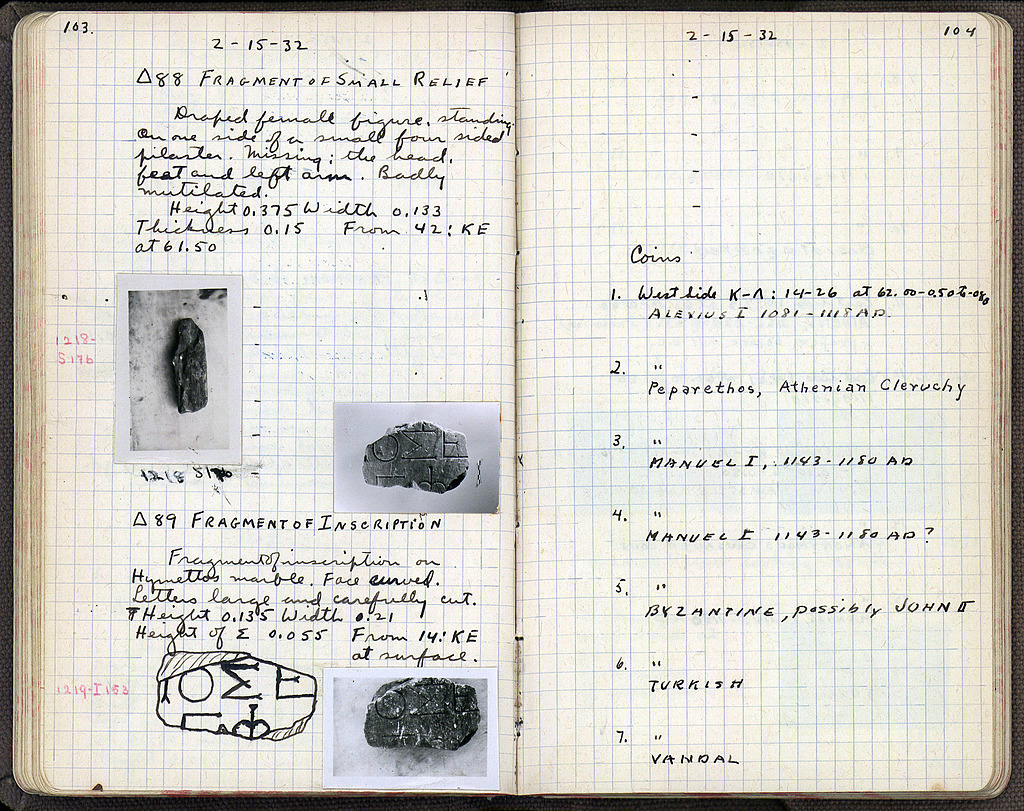 103.
2-15-32
Δ88 FRAGMENT OF SMALL RELIEF
Draped female figure, standing
on one side of a small four sided
pilaster. Missing: the head,
feet and left arm. Badly
mutilated.
Height 0.375 Width 0.133
Thickness 0.15 From 42:KE
at 61.50
1218-
S176
1218 S176
ΟΣΕ
Δ89 FRAGMENT OF INSCRIPTION
Fragment of inscription on
Hymettos marble. Face curved.
Letters large and carefully cut.
Height 0.135 Width 0.21
Height of Σ 0.055 From 14:KE
at surface.
1219-I153
ΟΣΕ
104
2-15-32
Coins
1. West Side K-Λ: 14-26 at 62.00-0.50 to
ALEXIUS I 1081-1118 AD.
2. "
Peparethos, Athenian Cleruchy
3. "
MANUEL I, 1143-1180 AD
4. "
MANUEL I 1143-1180 AD?
5. "
BYZANTINE, possibly JOHN II
6. "
TURKISH
7. "
VANDAL